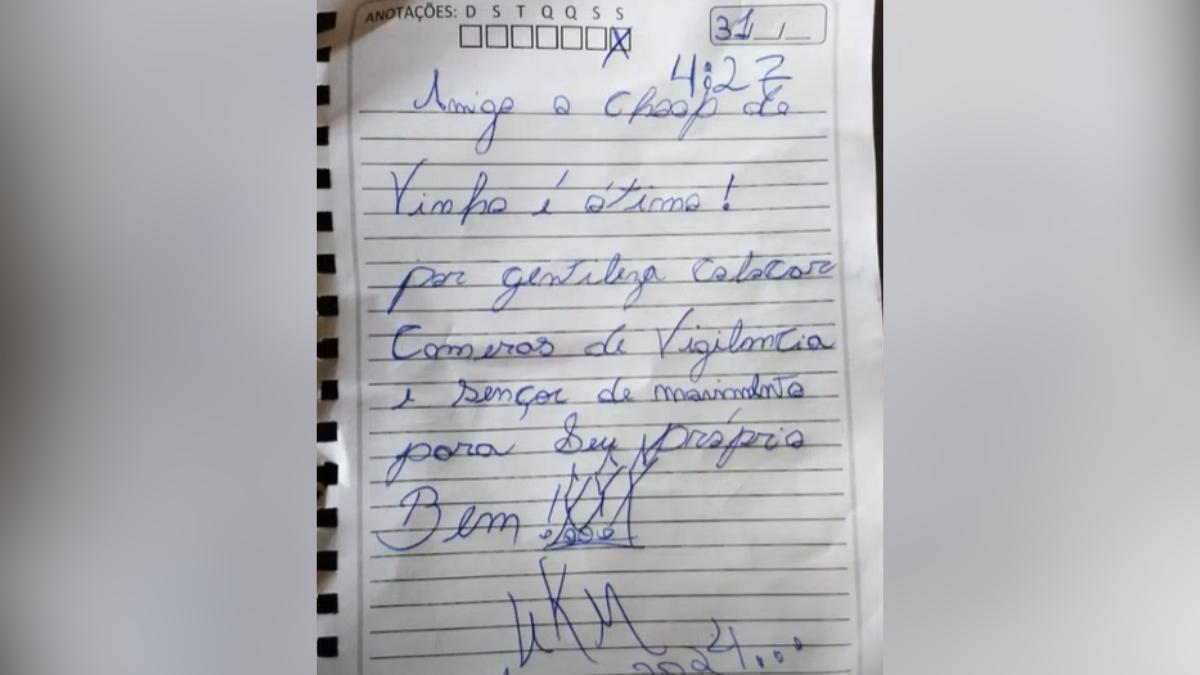 ANOTAÇÕES: D S T Q Q S S
31/ /
4:27
Amigo o choop de
Vinho é ótimo!
por gentileza colocar
Comeras de Vigilancia
e sençor de movimento
para Seu próprio
Bem !!!!
2024...